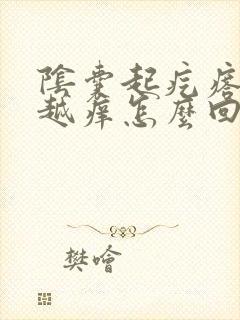 陰囊起疙瘩
越癢怎麼回
樊噲